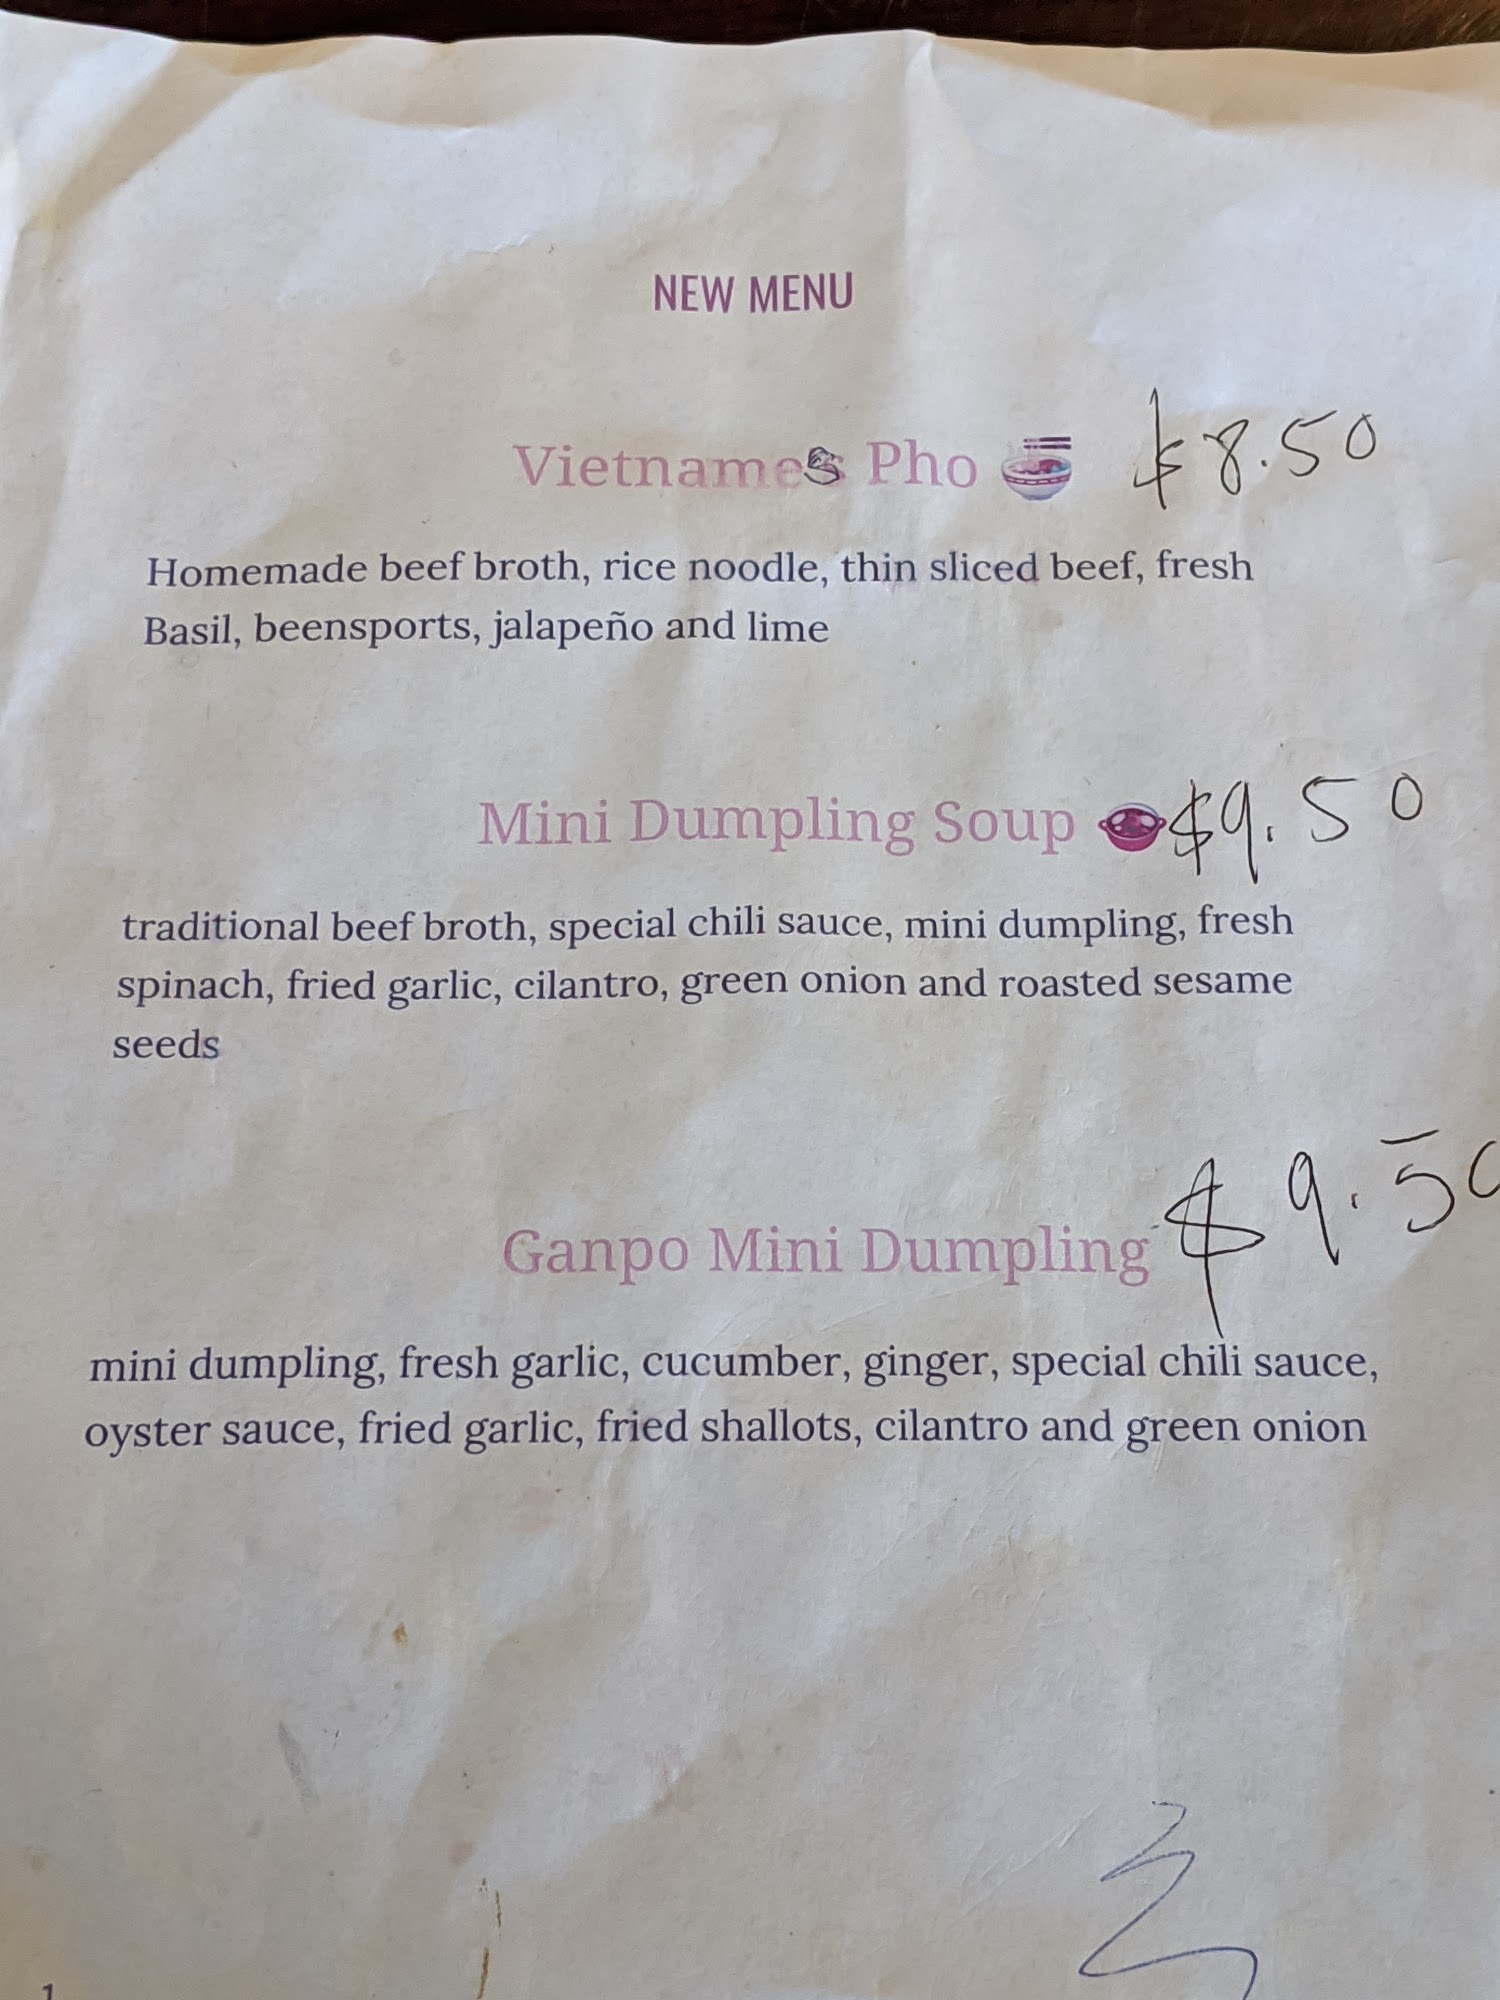 NEW MENU
Vietnames Pho $8.50
Homemade beef broth, rice noodle, thin sliced beef, fresh
Basil, beensports, jalapeño and lime
Mini Dumpling Soup $9.50
traditional beef broth, special chili sauce, mini dumpling, fresh
spinach, fried garlic, cilantro, green onion and roasted sesame
seeds
Ganpo Mini Dumpling $9.50
mini dumpling, fresh garlic, cucumber, ginger, special chili sauce,
oyster sauce, fried garlic, fried shallots, cilantro and green onion
1